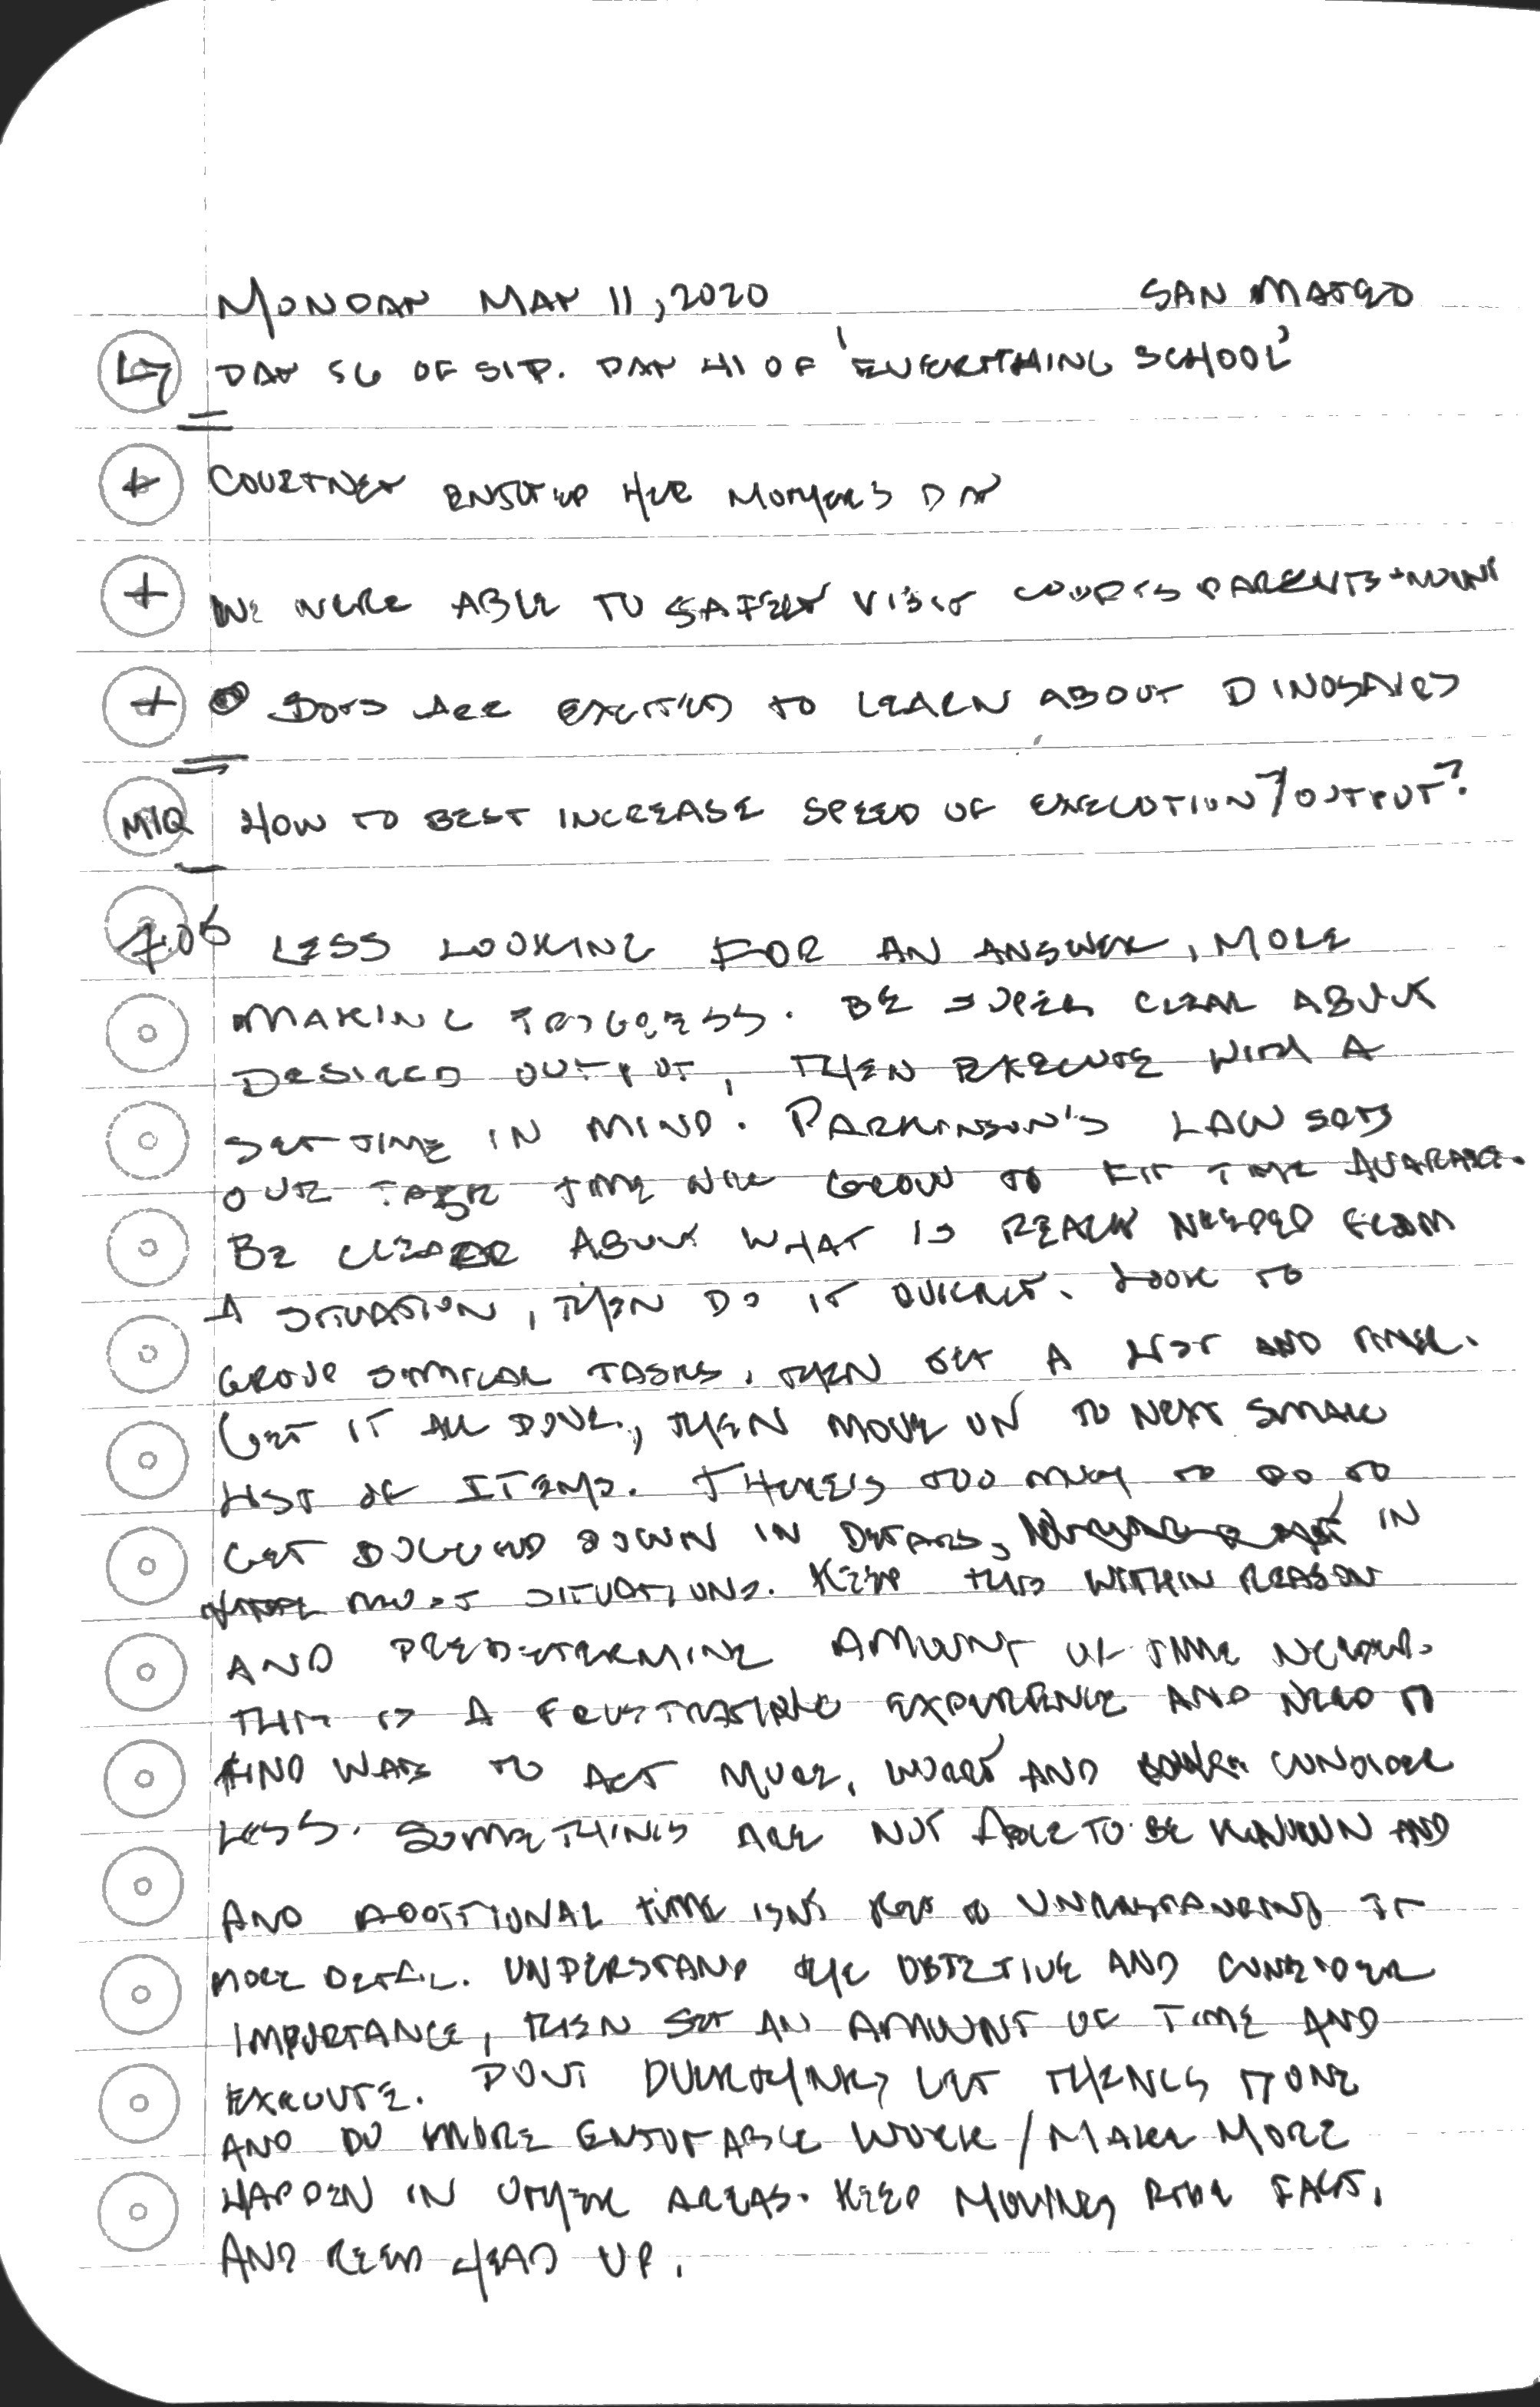 MONDAY MAY 11, 2020 SAN MATEO
L7 DAY 56 OF SIP. DAY 41 OF 'EVERYTHING SCHOOL'
+ COURTNEY ENJOYED HER MOTHER'S DAY
+ WE WERE ABLE TO SAFELY VISIT COURT'S PARENTS +
+ BOYS ARE EXCITED TO LEARN ABOUT DINOSAURS
MIQ HOW TO BEST INCREASE SPEED OF EXECUTION / OUTPUT?
7:06 LESS LOOKING FOR AN ANSWER, MORE
MAKING PROGRESS. BE SUPER CLEAR ABOUT
DESIRED OUTPUT, THEN EXECUTE WITH A
SET TIME IN MIND. PARKINSON'S LAW SAYS
OUR TASK TIME WILL GROW TO FIT TIME AVAILABLE.
BE CLEAR ABOUT WHAT IS REALLY NEEDED FROM
A SITUATION, THEN DO IT QUICKLY. LOOK TO
GROUP SIMILAR TASKS, THEN SET A LIST AND TIMER.
GET IT ALL DONE, THEN MOVE ON TO NEXT SMALL
LIST OF ITEMS. THERE'S TOO MUCH TO DO TO
GET BOGGED DOWN IN DETAILS, IN
MOST SITUATIONS. KEEP THIS WITHIN REASON
AND PREDETERMINE AMOUNT OF TIME NEEDED.
THIS IS A FRUSTRATING EXPERIENCE AND NEED TO
FIND WAYS TO ACT MORE, WORRY AND CONSIDER
LESS. SOME THINGS ARE NOT ABLE TO BE KNOWN AND
AND ADDITIONAL TIME ISN'T KEY TO UNDERSTANDING IT
MORE DETAIL. UNDERSTAND THE OBJECTIVE AND CONSIDER
IMPORTANCE, THEN SET AN AMOUNT OF TIME AND
EXECUTE. DON'T OVERTHINK, GET THINGS DONE
AND DO MORE ENJOYABLE WORK / MAKE MORE
HAPPEN IN OTHER AREAS. KEEP MOVING, RIDE FAST,
AND KEEP HEAD UP.